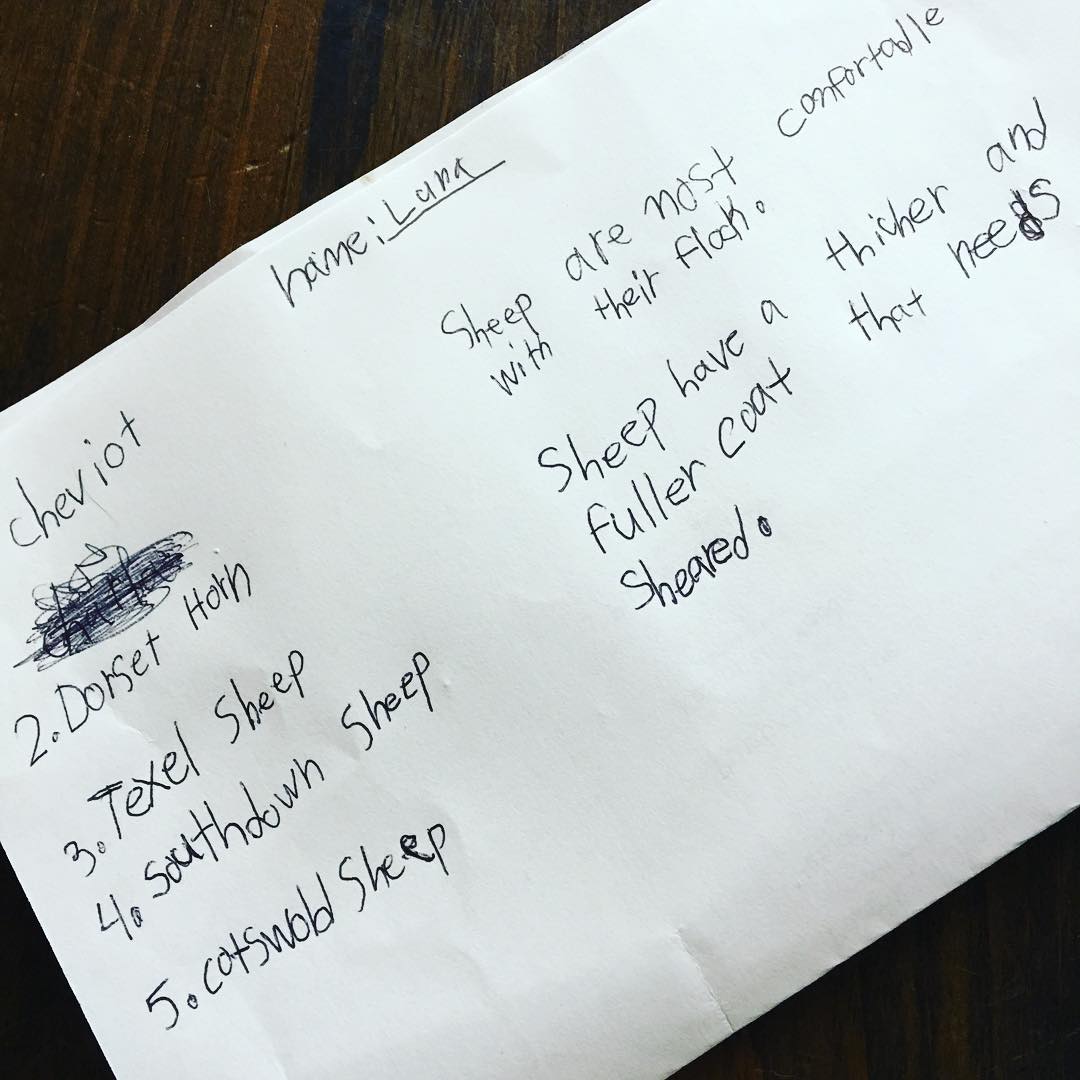 name: Lana
Sheep are most confortable
with their flock.
Sheep have a thicher and
fuller coat that needs
Sheared.
cheviot
2. Dorset Horn
3. Texel Sheep
4. Southdown Sheep
5. cotswold Sheep